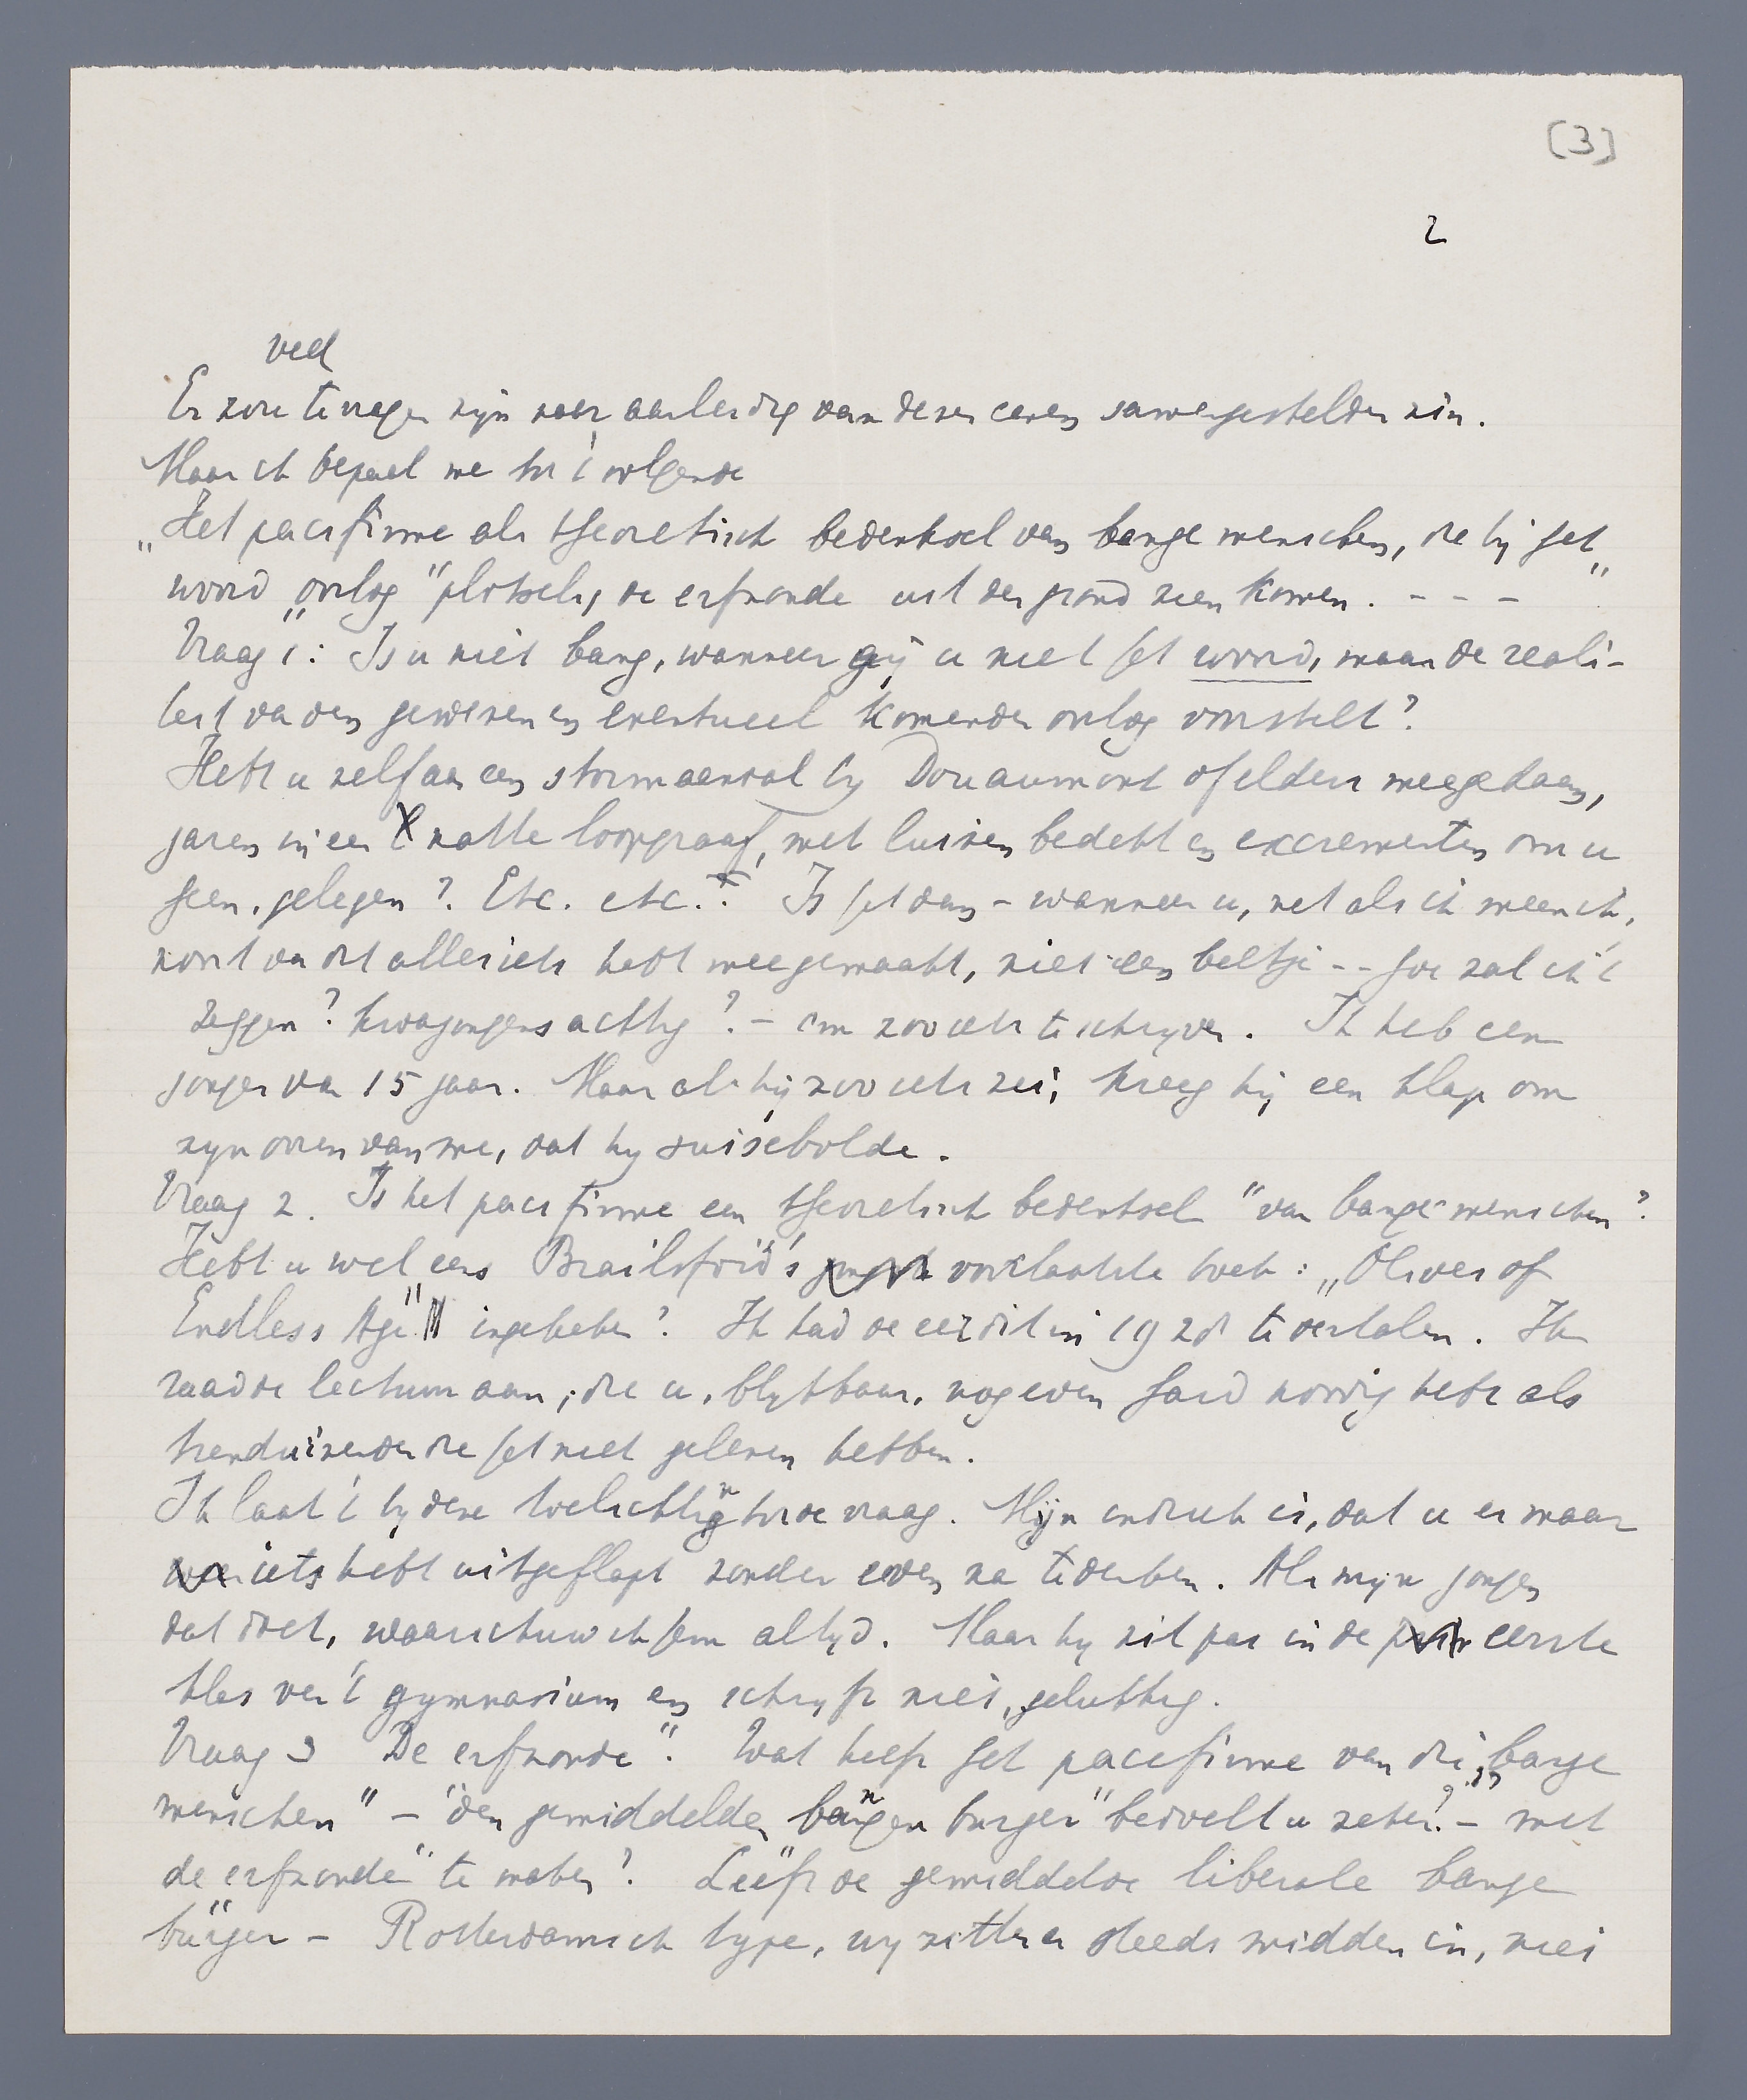 [3]
2
veel
Er zou te vragen zijn naar aanleiding van dezen eenen samengestelden zin.
Maar ik bepaal me tot 't volgende
„Het pacifisme als theoretisch bedenksel van bange menschen, die bij het
woord „oorlog" plotseling de erfzonde uit den grond zien komen. - - - "
Vraag 1: Is u niet bang, wanneer gij u niet het woord, maar de reali-
teit van den geweezen en eventueel komenden oorlog voorstelt?
Hebt u zelf aan een stormaanval bij Douaumont of elders meegedaan,
jaren in een natte loopgraaf, met luizen bedekt en excrementen om u
heen, gelegen? Etc. etc.? Is het dan - wanneer u, net als ik meen ik,
nooit van dit alles iets hebt meegemaakt, niet een beetje - - hoe zal ik 't
zeggen? kwajongensachtig? - om zoo iets te schrijven. Ik heb een
jongen van 15 jaar. Maar als hij zoo iets zei, kreeg hij een klap om
zijn ooren van me, dat hij duizelbolde.
Vraag 2. Is het pacifisme een theoretisch bedenksel "van bange menschen"?
Hebt u wel eens Brailsford's voorlaatste boek: „Olives of
Endless Age" ingekeken? Ik had de eer dit in 1928 te vertalen. Ik
raad de lectuur aan, die u, blijkbaar, nog even hard noodig hebt als
tienduizenden die het niet gelezen hebben.
Ik laat 't bij deze toelichting tot de vraag. Mijn indruk is, dat u er maar
iets hebt uitgeflapt zonder even na te denken. Als mijn jongen
dat doet, waarschuw ik hem altijd. Maar hij zit pas in de eerste
klas van 't gymnasium en schrijft niet, gelukkig.
Vraag 3 "De erfzonde". Wat heeft het pacifisme van die „bange
menschen" - "den gemiddelden bangen burger" bedoelt u zeker? - met
"de erfzonde" te maken? Leeft de gemiddelde liberale bange
burger - Rotterdamsch type, wij zitten er steeds midden in, niet